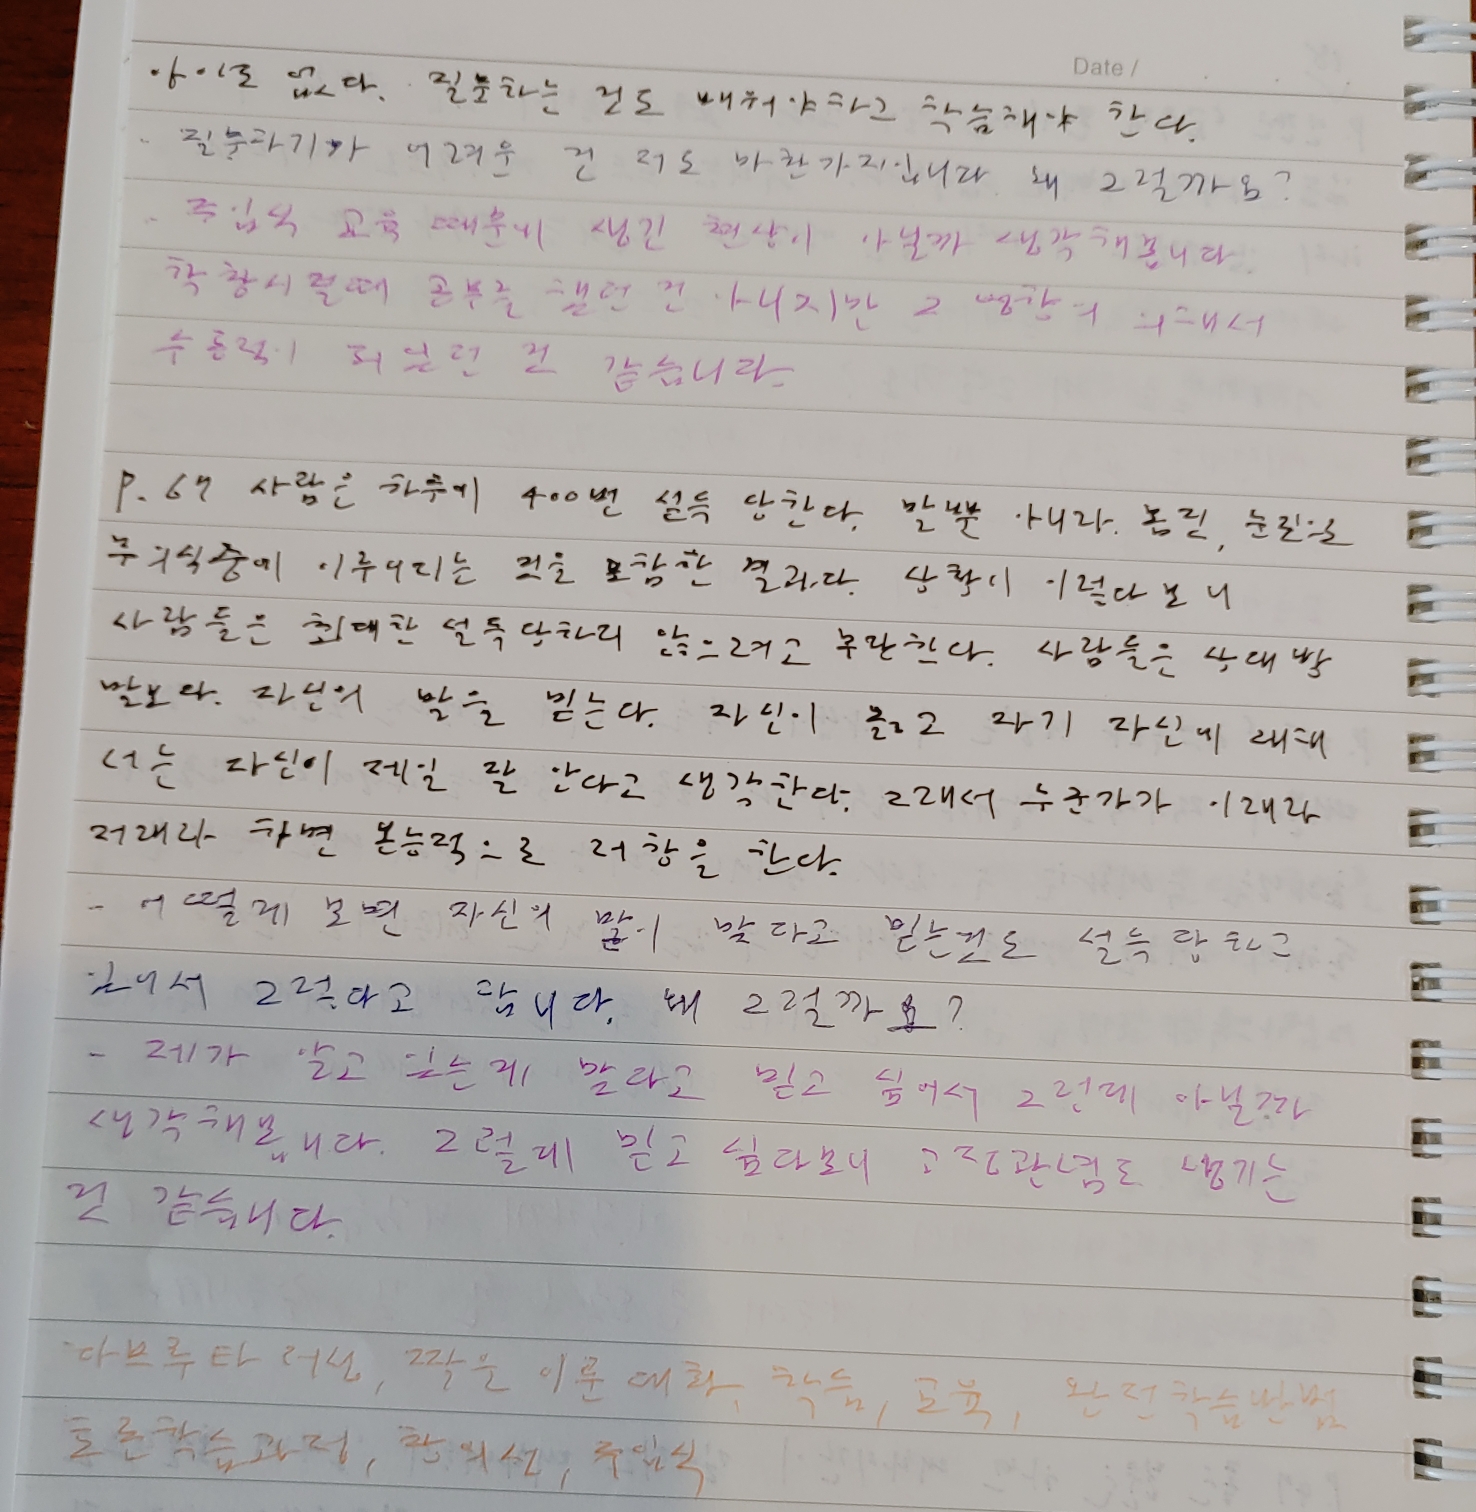 Date /
아이로 없다. 질문하는 것도 배워야하고 학습해야 한다.
- 질문하기가 어려운 건 저도 마찬가지입니다 왜 그럴까요?
- 주입식 교육 때문에 생긴 현상이 아닐까 생각해봅니다
학창시절때 공부를 했던 건 아니지만 그 영향에 의해서
수동적이 되었던 건 같습니다.
P. 67 사람은 하루에 400번 설득 당한다. 말뿐 아니라. 몸짓, 눈짓으로
무의식중에 이루어지는 것을 포함한 결과다. 상황이 이렇다보니
사람들은 최대한 설득당하지 않으려고 무단한다. 사람들은 상대방
말보다. 자신의 말을 믿는다. 자신이 옳고 자기 자신에 대해
서는 자신이 제일 잘 안다고 생각한다. 그래서 누군가가 이래라
저래라 하면 본능적으로 저항을 한다.
- 어떻게 보면 자신의 말이 맞다고 믿는것도 설득 당하고
있어서 그렇다고 합니다. 왜 그럴까요?
- 제가 알고 있는게 맞다고 믿고 싶어서 그런게 아닐까
생각해봅니다. 그렇게 믿고 싶다보니 고정관념도 생기는
것 같습니다.
하브루타 러성, 짝을 이룬 대화, 학습, 교육, 완전학습방법
토론학습과정, 창의성, 주입식